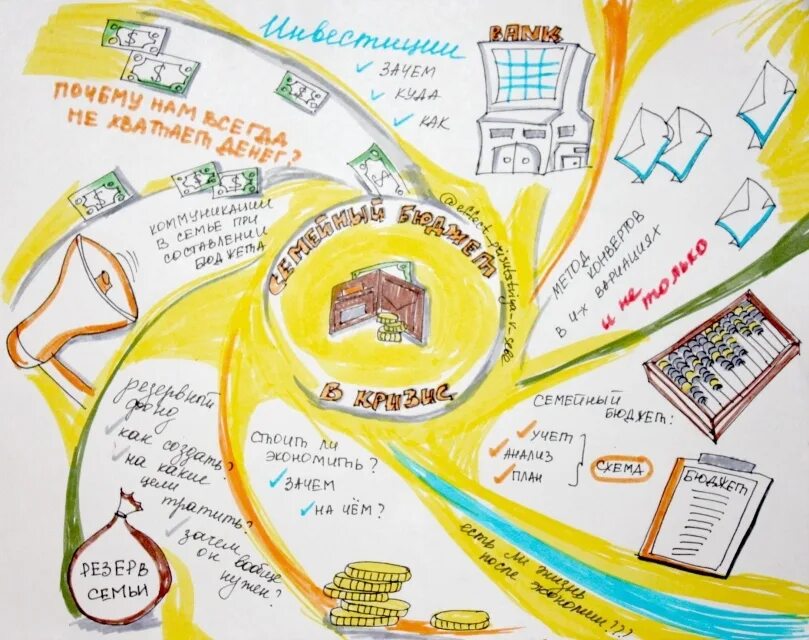 СЕМЕЙНЫЙ БЮДЖЕТ
В КРИЗИС
Инвестиции
ЗАЧЕМ
КУДА
КАК
BANK
МЕТОД
КОНВЕРТОВ
В ИХ ВАРИАЦИЯХ
и не
только
СЕМЕЙНЫЙ
БЮДЖЕТ:
УЧЕТ
АНАЛИЗ
ПЛАН
СХЕМА
БЮДЖЕТ
есть ли жизнь
после экономии???
СТОИТ ЛИ
ЭКОНОМИТЬ?
ЗАЧЕМ
НА ЧЁМ?
резервный
фонд
как создать?
на какие
цели
тратить?
зачем
он вообще
нужен?
РЕЗЕРВ
СЕМЬИ
КОММУНИКАЦИИ
В СЕМЬЕ ПРИ
СОСТАВЛЕНИИ
БЮДЖЕТА
ПОЧЕМУ НАМ ВСЕГДА
НЕ ХВАТАЕТ ДЕНЕГ?
$
$
$
$
$
$
$